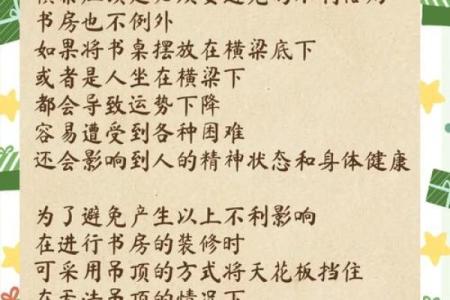 书房也不例外
如果将书桌摆放在横梁底下
或者是人坐在横梁下
都会导致运势下降
容易遭受到各种困难
还会影响到人的精神状态和身体健康
为了避免产生以上不利影响
在进行书房的装修时
可采用吊顶的方式将天花板挡住
在无法吊顶的情况下